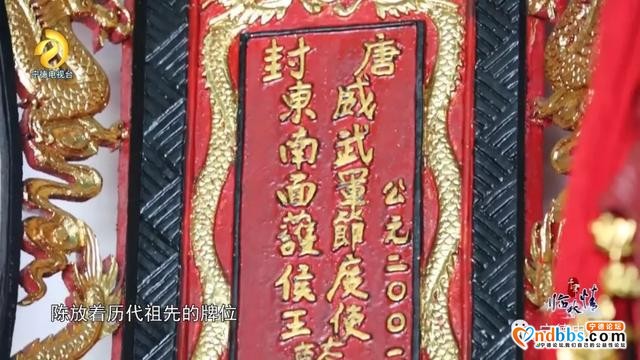 宁德电视台
公元二〇〇
唐
威武軍節度使
封東南面護侯王
陈放着历代祖先的牌位
临水情
ndbbs.com